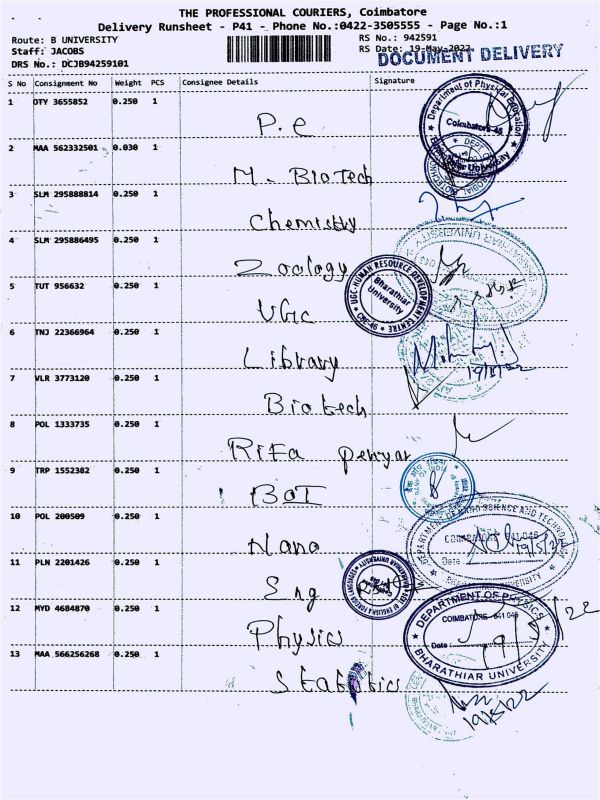 THE PROFESSIONAL COURIERS, Coimbatore
Delivery Runsheet - P41 - Phone No.:0422-3505555 - Page No.:1
Route: B UNIVERSITY
RS No.: 942591
Staff: JACOBS
RS Date: 19-May-2022
DRS No.: DCJB94259101
DOCUMENT DELIVERY
S No Consignment No Weight PCS Consignee Details Signature
1 OTY 3655852 0.250 1
P.e
Department of Physical Education
Coimbatore-46
2 MAA 562332501 0.030 1
M. BioTech
3 SLM 295888814 0.250 1
Chemistry
4 SLM 295886495 0.250 1
Zoology
5 TUT 956632 0.250 1
UGC
UGC-HUMAN RESOURCE DEVELOPMENT CENTRE
Bharathiar
University
CBE-46
6 TNJ 22366964 0.250 1
Library
19/5/22
7 VLR 3773120 0.250 1
Biotech
8 POL 1333735 0.250 1
Rifa periyar
9 TRP 1552382 0.250 1
BOI
10 POL 200509 0.250 1
Nano
DEPARTMENT OF NANO SCIENCE AND TECHNOLOGY
COIMBATORE 641 046
Date
19/5/22
11 PLN 2201426 0.250 1
Eng
12 MYD 4684870 0.250 1
Physics
DEPARTMENT OF PHYSICS
COIMBATORE 641 046
Date
19/5/22
BHARATHIAR UNIVERSITY
13 MAA 566256268 0.250 1
Statistics
19/5/22